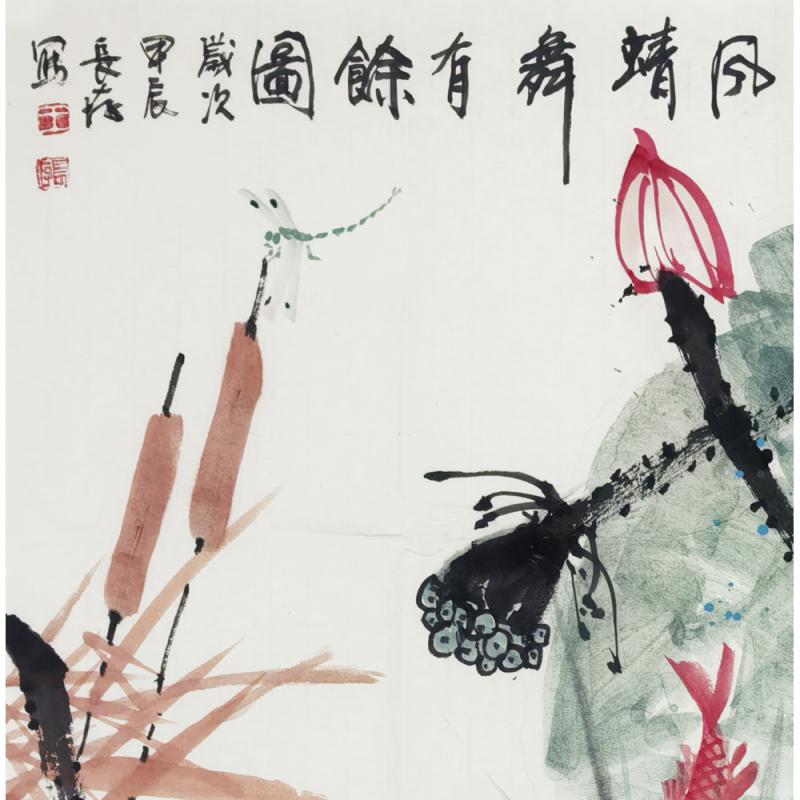 风蜻舞有餘圖
歲次
甲辰
長
寫